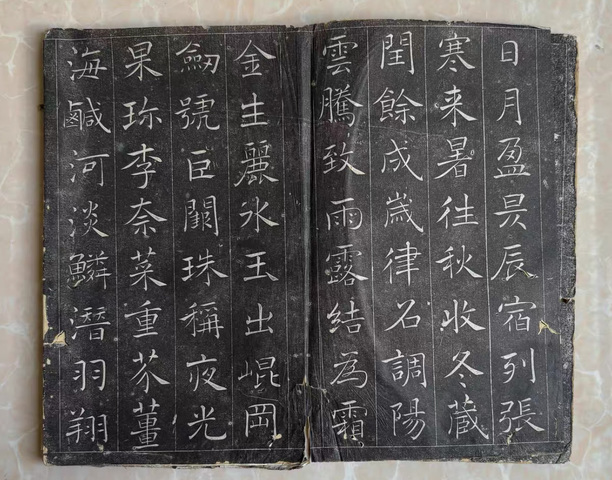 日月盈昃辰宿列張
寒来暑往秋收冬蔵
閏餘成歳律召調陽
雲騰致雨露結為霜
金生麗水玉出崐岡
劒號巨闕珠稱夜光
果珎李奈菜重芥薑
海鹹河淡鱗潛羽翔